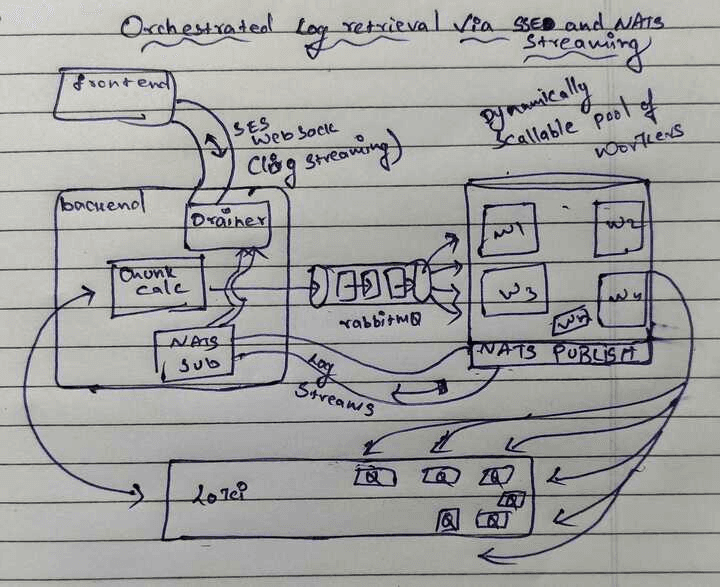 Orchestrated Log retrieval Via SSE and NATS
Streaming
frontend
SES
Websock
(log streaming)
Dynamically
Scallable pool of
Workers
backend
Drainer
Chunk
calc
NATS
Sub
rabbitMQ
W1
W2
W3
W4
Wn
NATS PUBLISH
Log
Streams
Loki
Q
Q
Q
Q
Q
Q